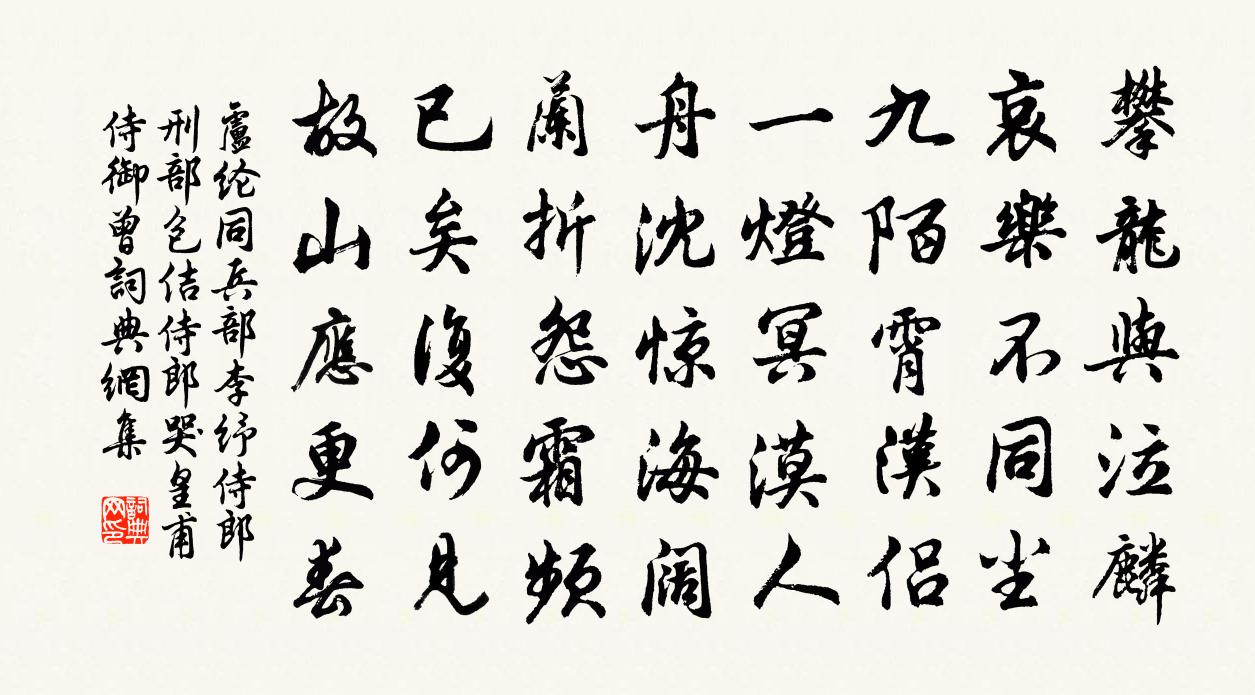 攀龍與泣麟
哀樂不同塵
九陌霄漢侶
一燈冥漠人
舟沈惊海闊
蘭折怨霜頻
已矣復何見
故山應更春
盧纶同兵部李纾侍郎
刑部包佶侍郎哭皇甫
侍御曾詞典網集
詞典
网印